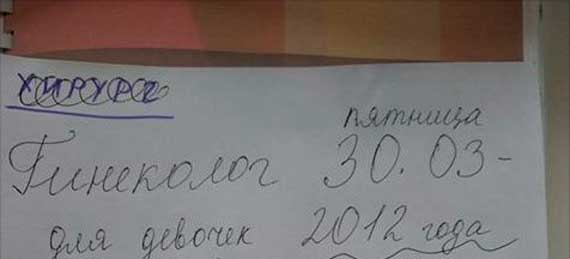 хирург
пятница
Гинеколог 30.03-
для девочек 2012 года